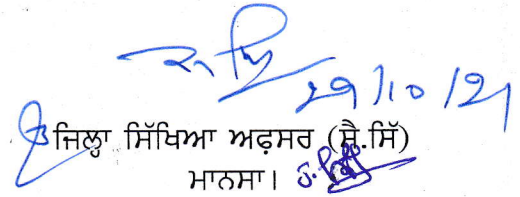 29/10/21
ਜਿਲ੍ਹਾ ਸਿੱਖਿਆ ਅਫ਼ਸਰ (ਸੈ.ਸਿੱ)
ਮਾਨਸਾ।